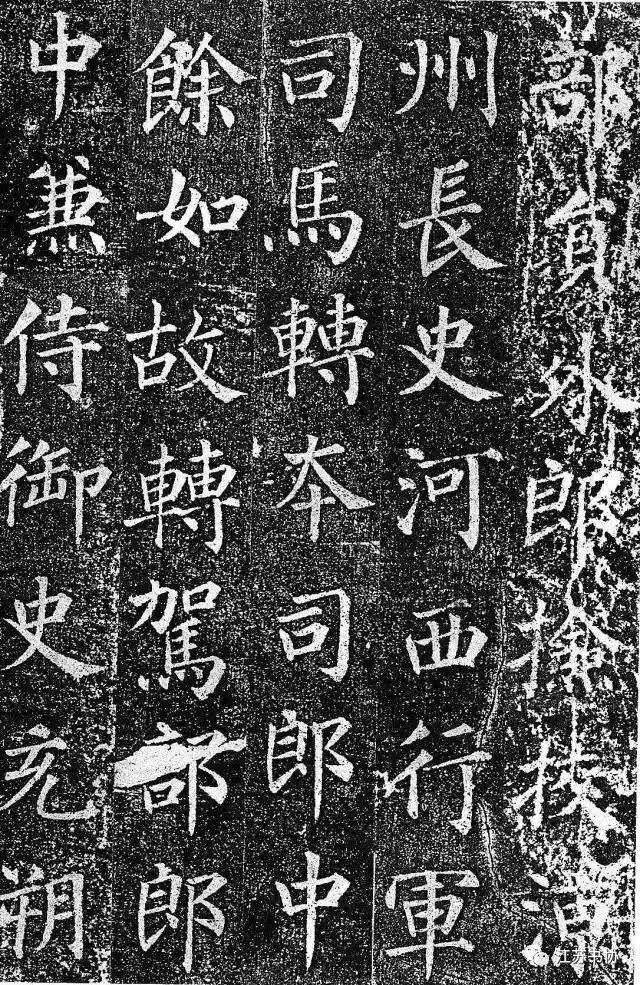 部貟外郎撿挍涼
州長史河西行軍
司馬轉本司郎中
餘如故轉駕部郎
中兼侍御史充朔
江苏书协